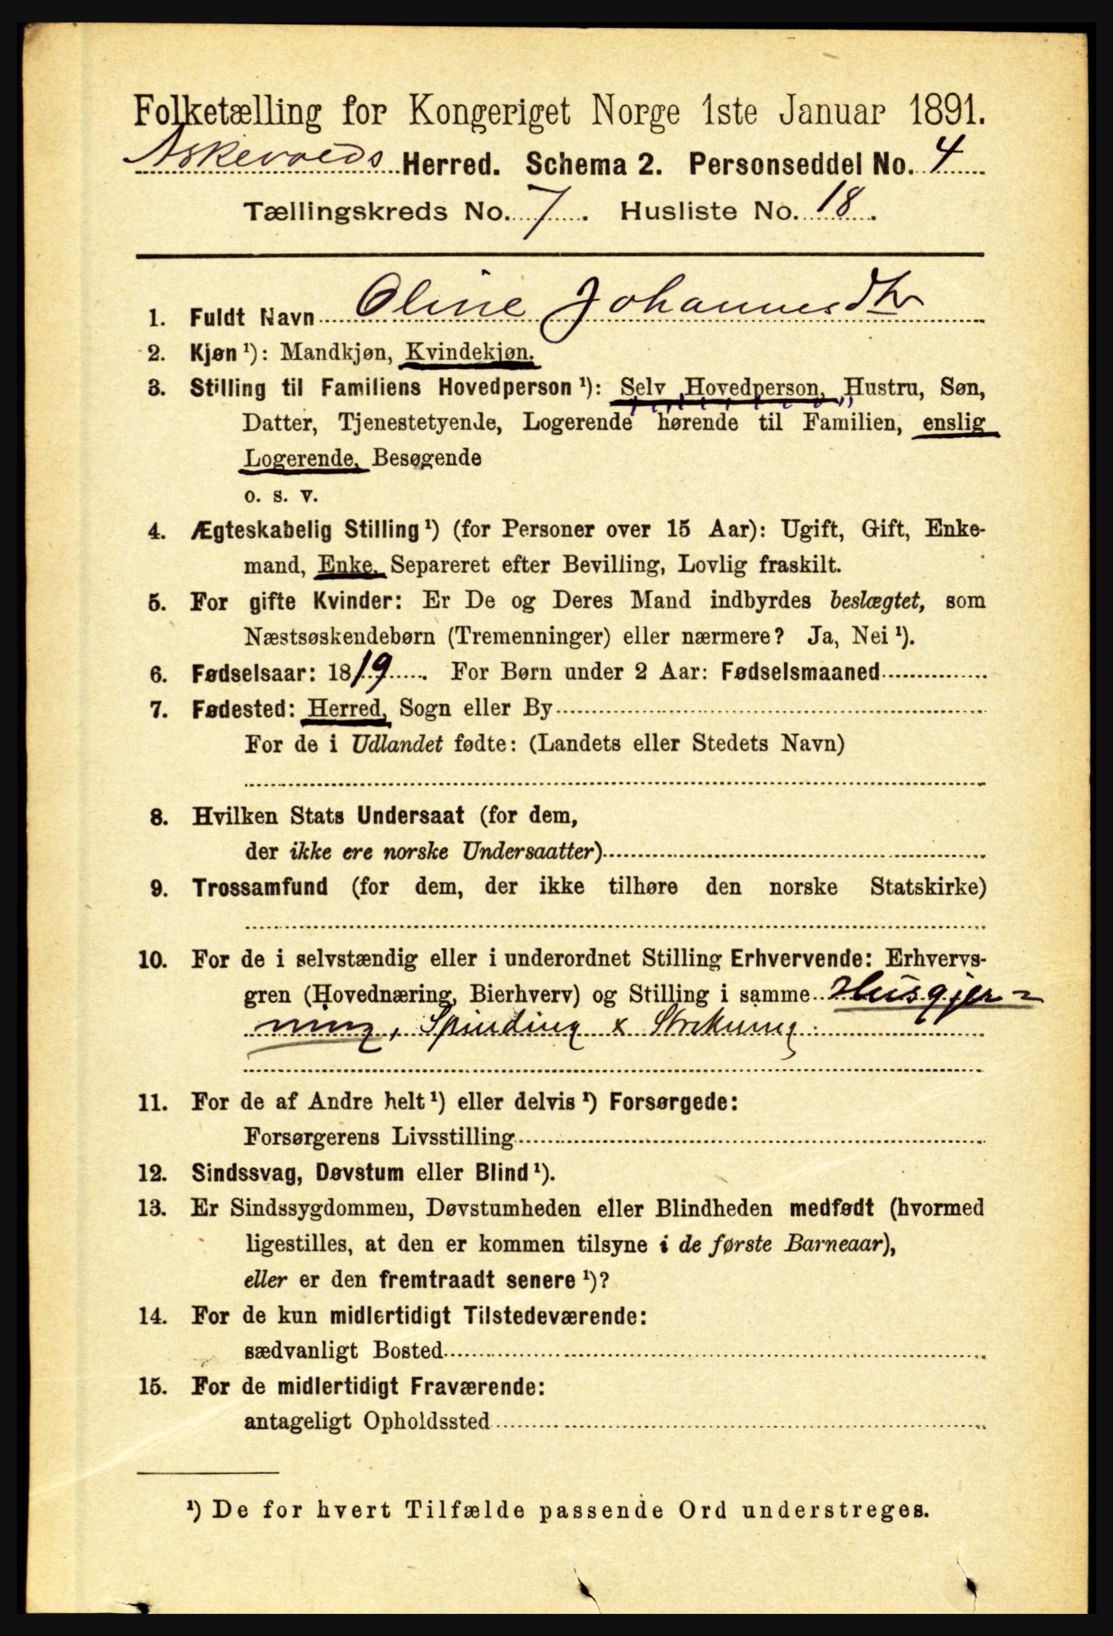 Folketælling for Kongeriget Norge 1ste Januar 1891.
Askevolds Herred. Schema 2. Personseddel No. 4
Tællingskreds No. 7. Husliste No. 18.
1. Fuldt Navn Oline Johannesdtr
2. Kjøn ¹): Mandkjøn, Kvindekjøn.
3. Stilling til Familiens Hovedperson ¹): Selv Hovedperson, Hustru, Søn,
Datter, Tjenestetyende, Logerende hørende til Familien, enslig
Logerende, Besøgende
o. s. v.
4. Ægteskabelig Stilling ¹) (for Personer over 15 Aar): Ugift, Gift, Enke-
mand, Enke, Separeret efter Bevilling, Lovlig fraskilt.
5. For gifte Kvinder: Er De og Deres Mand indbyrdes beslægtet, som
Næstsøskendebørn (Tremenninger) eller nærmere? Ja, Nei ¹).
6. Fødselsaar: 1819. For Børn under 2 Aar: Fødselsmaaned
7. Fødested: Herred, Sogn eller By
For de i Udlandet fødte: (Landets eller Stedets Navn)
8. Hvilken Stats Undersaat (for dem,
der ikke ere norske Undersaatter)
9. Trossamfund (for dem, der ikke tilhøre den norske Statskirke)
10. For de i selvstændig eller i underordnet Stilling Erhvervende: Erhvervs-
gren (Hovednæring, Bierhverv) og Stilling i samme Husgjer-
ning, Spinding & Strikning.
11. For de af Andre helt ¹) eller delvis ¹) Forsørgede:
Forsørgerens Livsstilling
12. Sindssvag, Døvstum eller Blind ¹).
13. Er Sindssygdommen, Døvstumheden eller Blindheden medfødt (hvormed
ligestilles, at den er kommen tilsyne i de første Barneaar),
eller er den fremtraadt senere ¹)?
14. For de kun midlertidigt Tilstedeværende:
sædvanligt Bosted
15. For de midlertidigt Fraværende:
antageligt Opholdssted
¹) De for hvert Tilfælde passende Ord understreges.